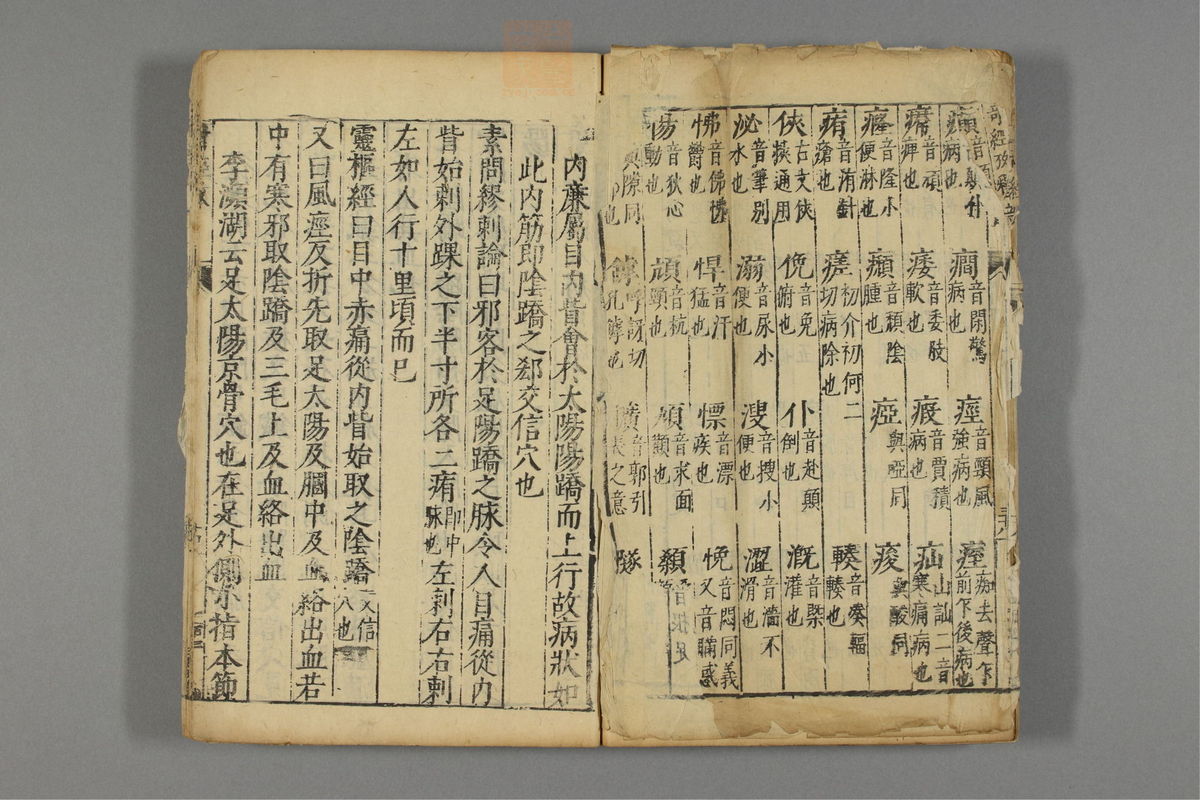 癲音顛仆病也 癇音閑驚病也 痙音頸風強病也 痓癡去聲乍前乍後病也
㿏音頑痺也 痿音委肢軟也 瘕音賈積病也 疝山訕二音寒痛病也
癃音隆小便淋也 㿗音頽陰腫也 瘂與啞同 痠與酸同
痏音洧針瘡也 瘥初介初何二切病除也 輳音奏輻輳也
俠古文挾挾通用 俛音免俯也 仆音赴顛倒也 漑音槩灌也
泌音筆別水也 溺音尿小便也 溲音搜小便也 澀音濇不滑也
怫音佛怫鬱也 悍音汗猛也 慓音漂疾也 悗音悶同義又音瞞惑
惕音狄心動也 頏音杭頸也 頄音求面顴也 顙
與隙同 罅呼訝切孔罅也 彍音郭引張之意 隊
內廉屬目內眥會於太陽陽蹻而上行故病狀如
此內筋卽陰蹻之郄交信穴也
素問繆刺論曰邪客於足陽蹻之脉令人目痛從內
眥始刺外踝之下半寸所各二痏卽申脉也左刺右右刺
左如人行十里頃而已
靈樞經曰目中赤痛從內眥始取之陰蹻交信穴也
又曰風痙反折先取足太陽及膕中及血絡出血若
中有寒邪取陰蹻及三毛上及血絡出血
李瀕湖云足太陽京骨穴也在足外側小指本節